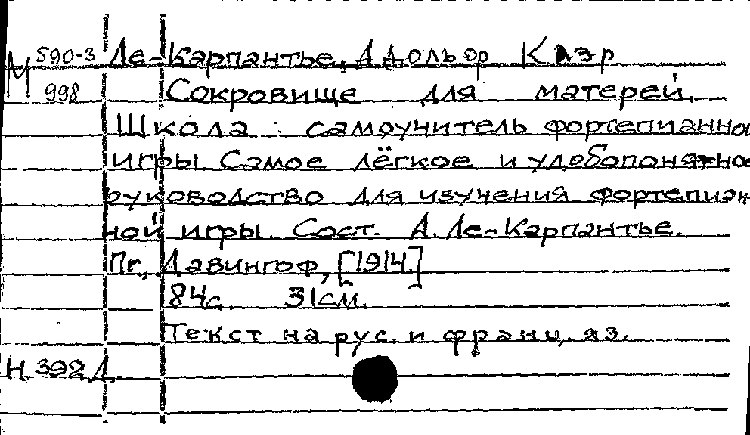 М 590-3 Ле-Карпантье, Адольф Клэр
998 Сокровище для матерей.
Школа : самоучитель фортепианно
игры. Самое лёгкое и удобопонятное
руководство для изучения фортепиан
ной игры. Сост. А. Ле-Карпантье.
Пг., Давингоф, [1914.]
84с. 31см.
Текст на рус. и франц. яз.
Н 392 Л